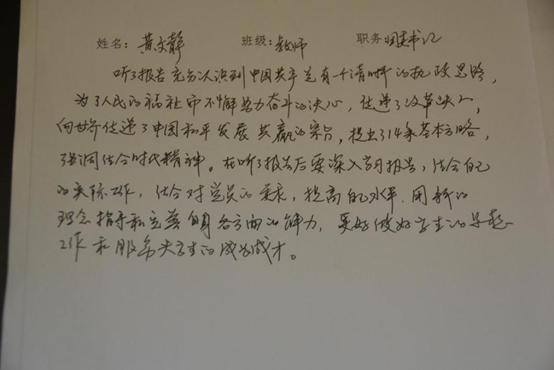 姓名：黄文静 班级：教师 职务 团委书记
听了报告充分认识到中国共产党有一个清晰的执政思路，
为了人民的福祉而不懈努力奋斗的决心，传递了改革
向世界传递了中国和平发展共赢的宗旨，提出了14条基本方略，
强调结合时代精神。在听了报告后要深入学习报告，结合自己
的实际工作，结合对党员的要求，提高自己水平，用新的
理念指导和完善自身各方面的能力，更好做好学生的
工作和服务 学生的成长成才。